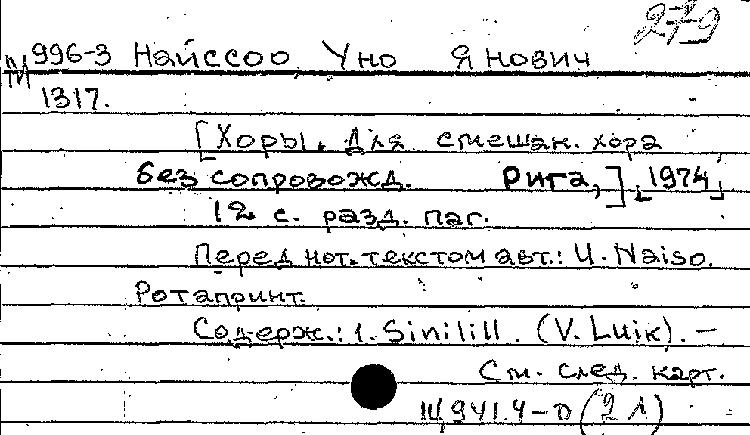 279
996-3 Найссоо, Уно Янович
М
1317.
[Хоры. Для смешан. хора
без сопровожд. Рига,] [1974]
12 с. разд. паг.
Перед нот. текстом авт.: U. Naiso.
Ротапринт.
Содерж.: 1. Sinilill. (V. Luik). —
См. след. карт.
Щ941.4-0 (2 Л)